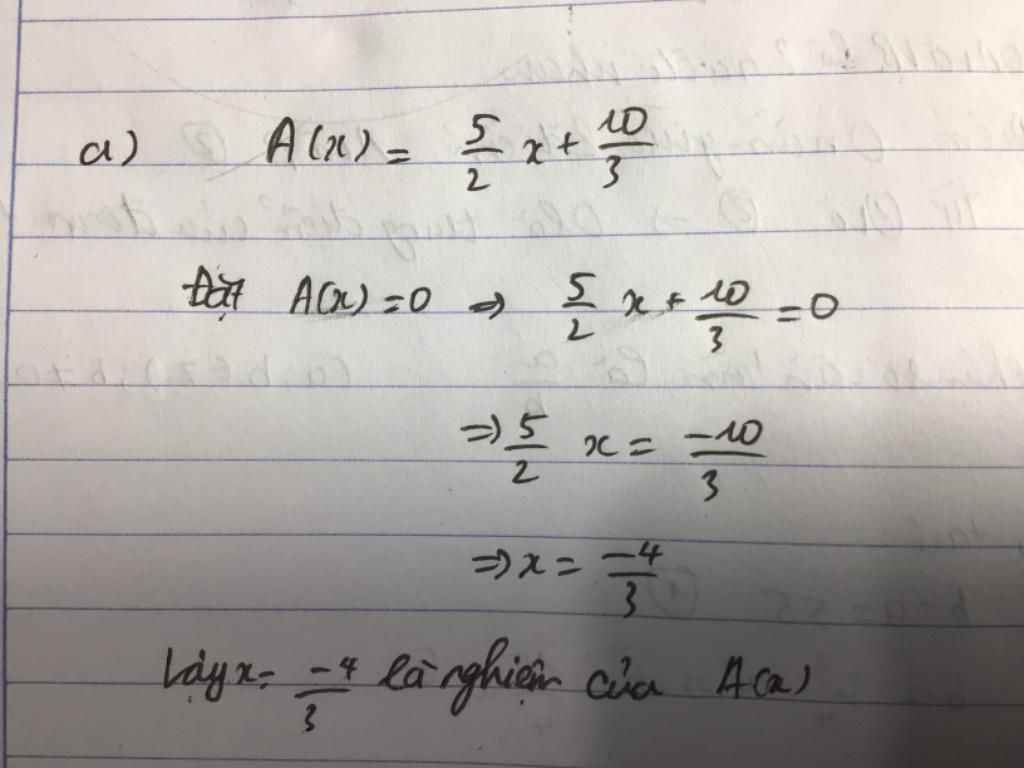 a) A(x) = 5/2 x + 10/3
Đặt A(x) = 0 => 5/2 x + 10/3 = 0
=> 5/2 x = -10/3
=> x = -4/3
Vậy x = -4/3 là nghiệm của A(x)